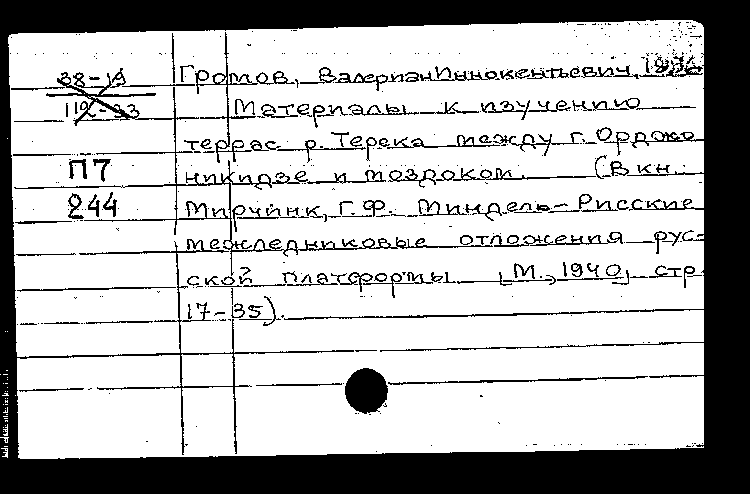 38-19
112-33
П7
244
Громов, Валериан Иннокентьевич,
Материалы к изучению
террас р. Терека между г. Орджо
никидзе и моздоком. (В кн.:
Мирчинк, Г.Ф. Миндель-Рисские
межледниковые отложения рус-
ской платформы [М., 1940, стр.
17-35).